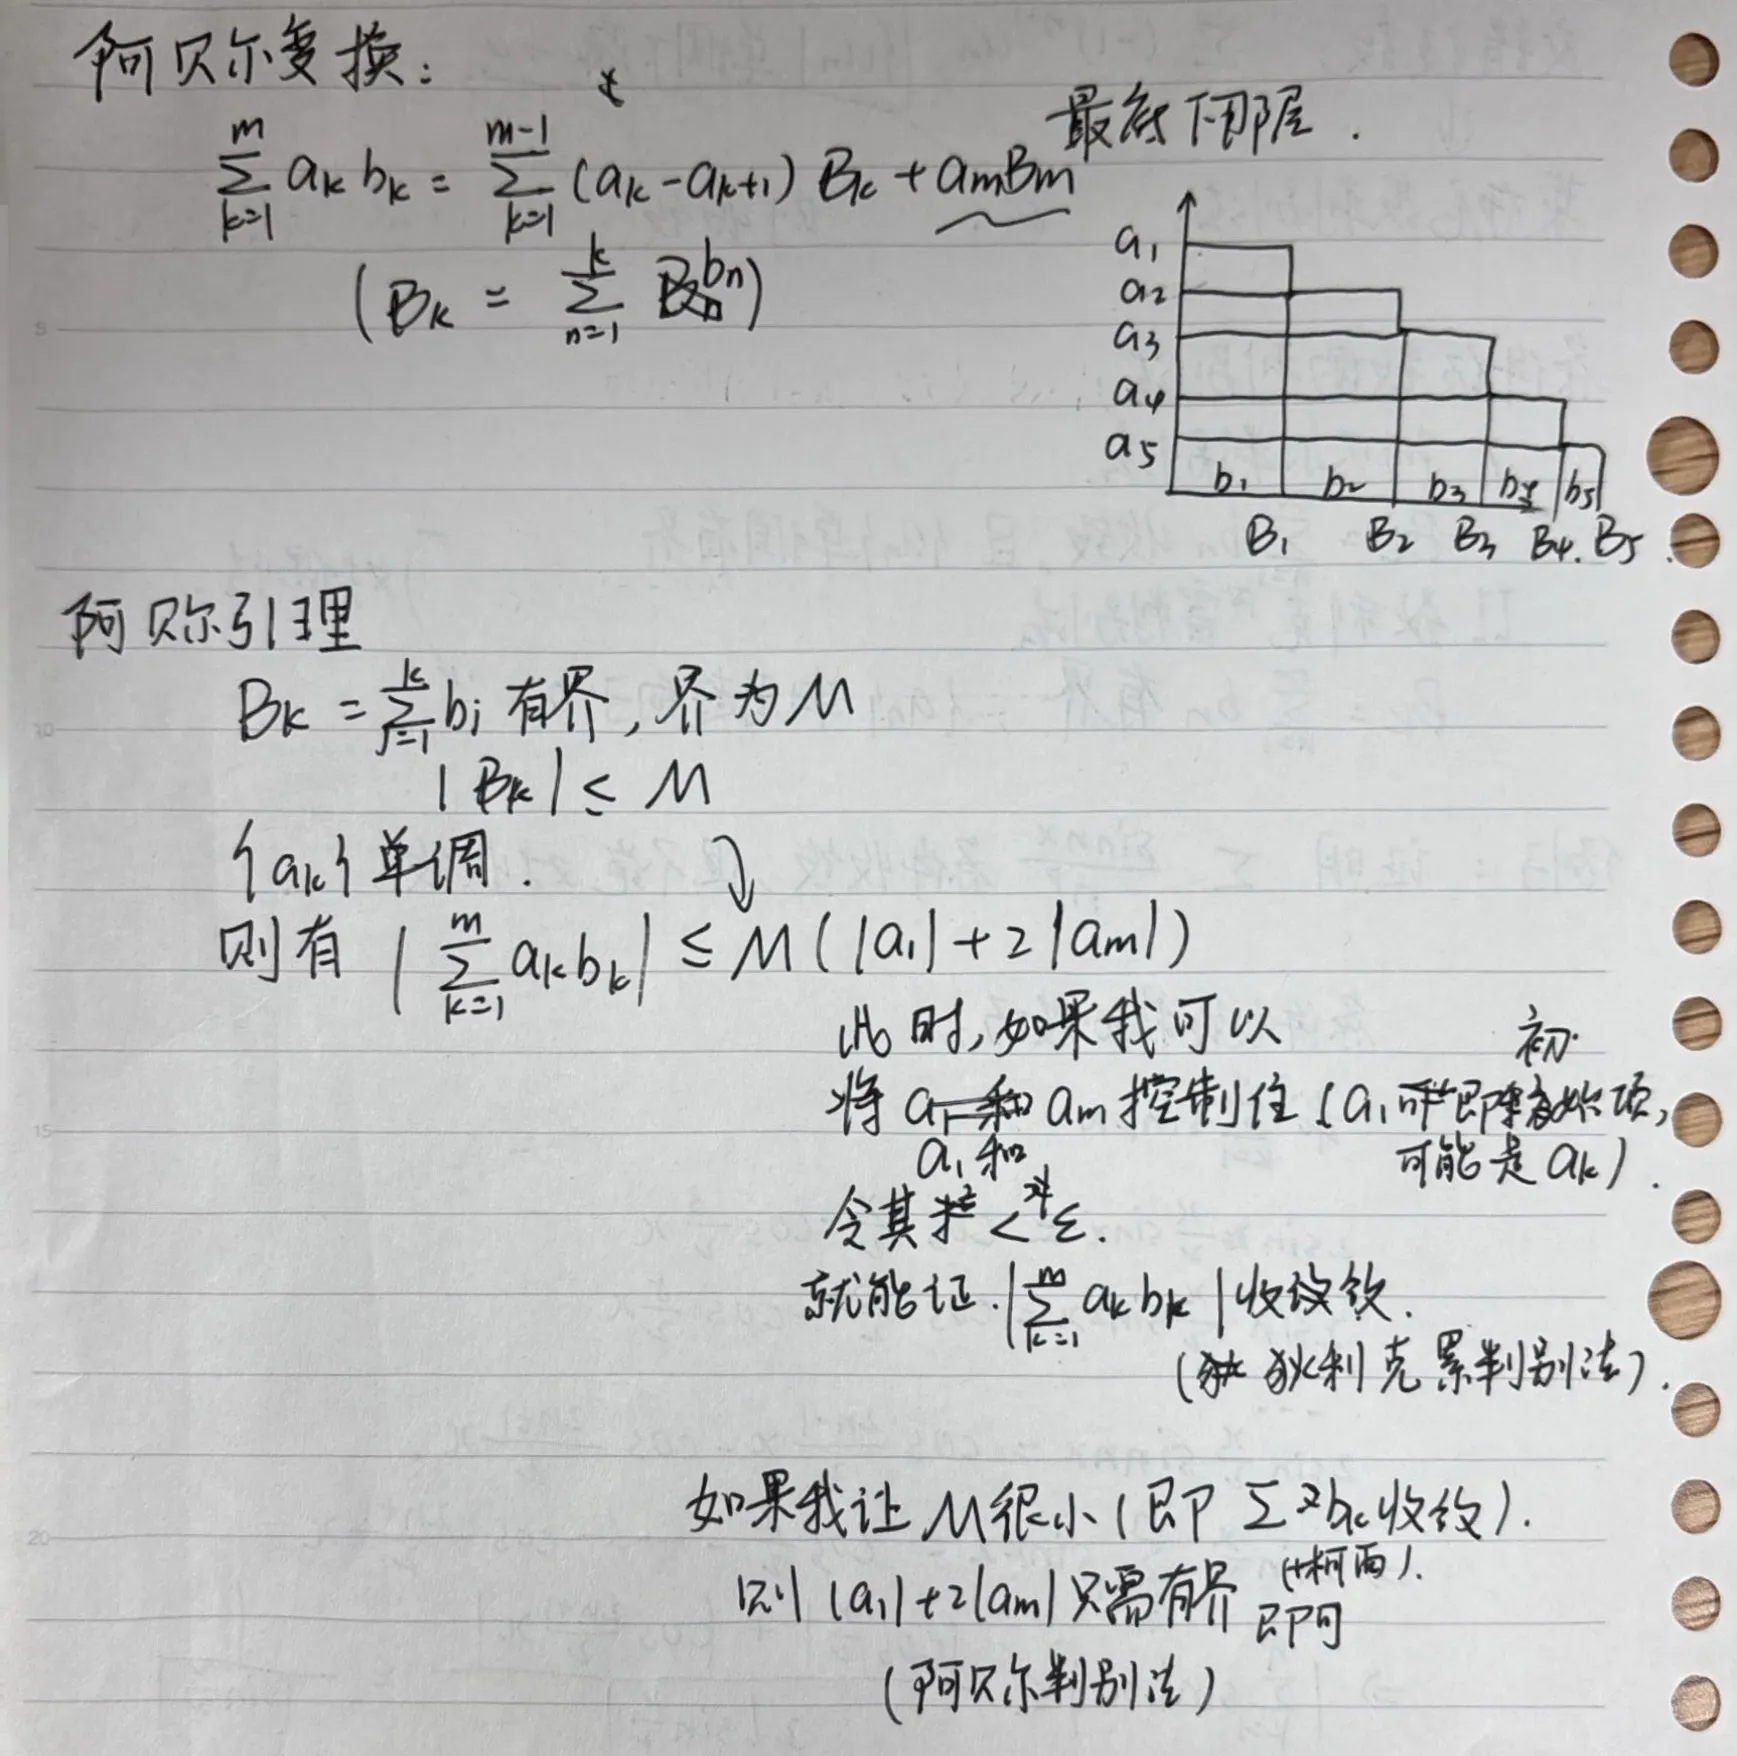 阿贝尔变换:
∑_{k=1}^{m} a_k b_k = ∑_{k=1}^{m-1} (a_k - a_{k+1}) B_k + a_m B_m
最底下那层.
(B_k = ∑_{n=1}^{k} b_n)
a1
a2
a3
a4
a5
b1 b2 b3 b4 b5
B1 B2 B3 B4. B5
阿贝尔引理
B_k = ∑_{j=1}^{k} b_j 有界, 界为M
|B_k| ≤ M
{a_k} 单调.
则有 |∑_{k=1}^{m} a_k b_k| ≤ M(|a_1| + 2|a_m|)
此时, 如果我可以
将 a_1 和 a_m 控制住 (a_1 即初始项,
可能是 a_k).
令其 < ε.
就能证 |∑_{k=1}^{m} a_k b_k| 收敛.
(狄利克累判别法).
如果我让 M 很小 (即 ∑ b_k 收敛).
(+柯西).
则 |a_1| + 2|a_m| 只需有界即可
(阿贝尔判别法)